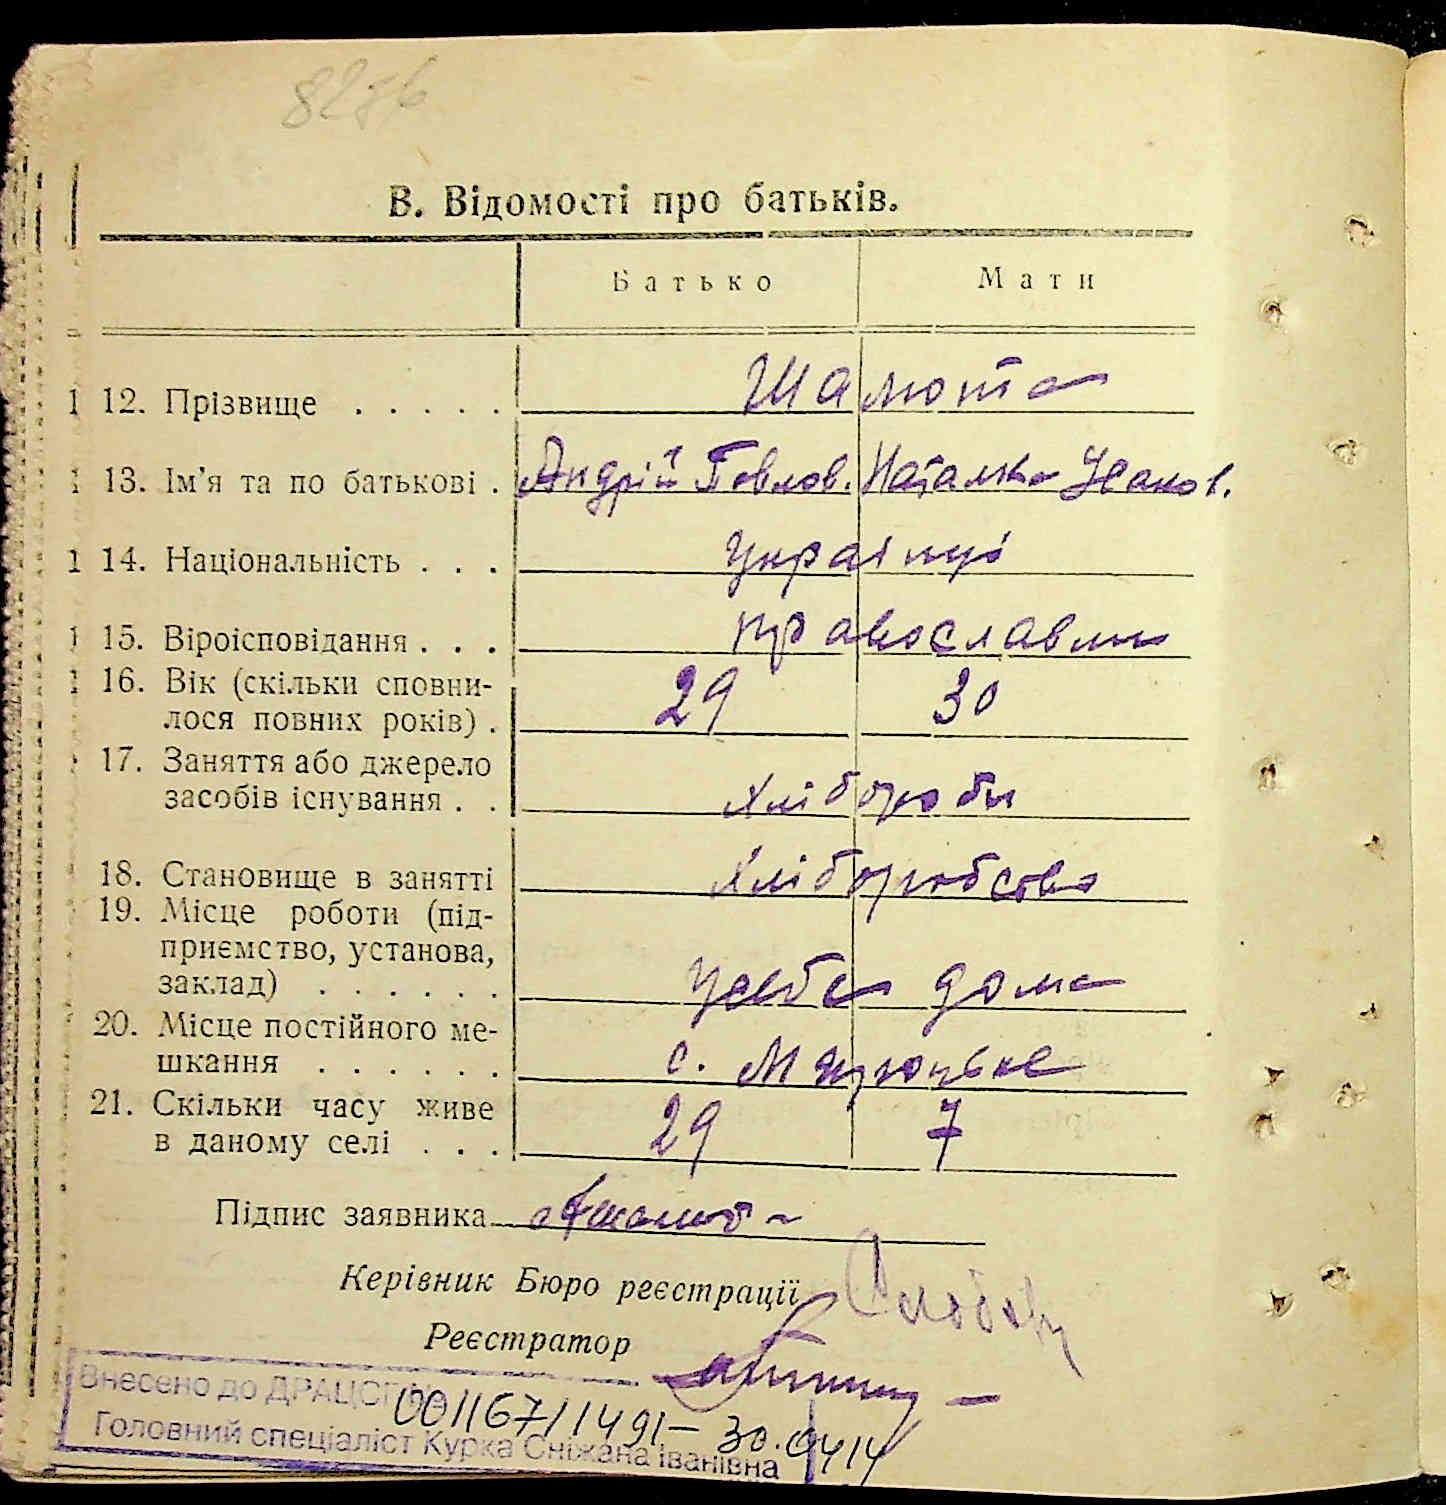 В. Відомості про батьків.
Батько Мати
12. Прізвище . . . . . Шамота
13. Ім'я та по батькові . Андрій Павлов. Наталка Іванов.
14. Національність . . . Українці
15. Віроісповідання . . . православні
16. Вік (скільки сповни-
лося повних років) . 29 30
17. Заняття або джерело
засобів існування . . Хлібороби
18. Становище в занятті Хліборобство
19. Місце роботи (під-
приємство, установа,
заклад) . . . . . . у себе дома
20. Місце постійного ме-
шкання . . . . . . с.
21. Скільки часу живе
в даному селі . . . 29 7
Підпис заявника
Керівник Бюро реєстрації
Реєстратор
Внесено до ДРАЦСГ 001167/1491 – 30.0414
Головний спеціаліст Курка Сніжана Іванівна